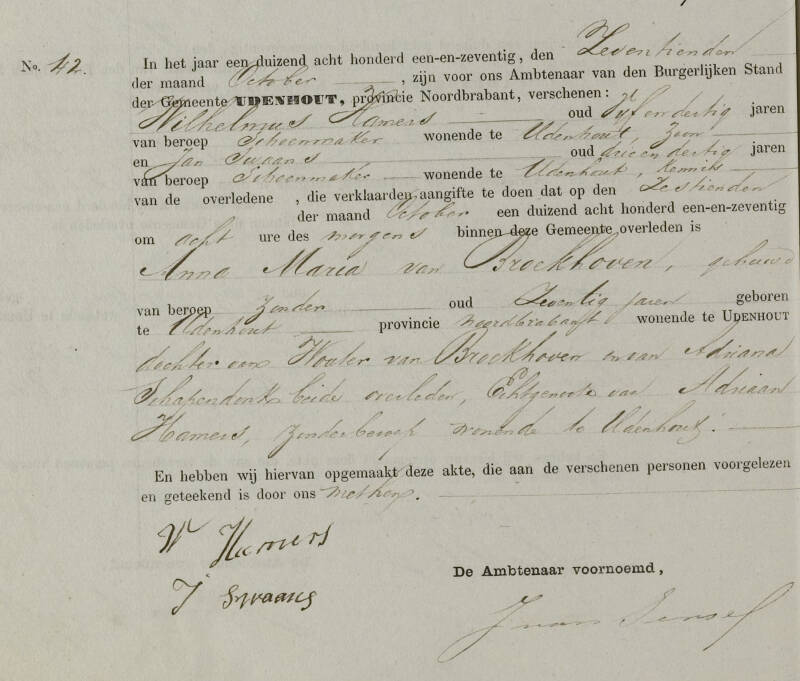 No. 42. In het jaar een duizend acht honderd een-en-zeventig, den Zeventienden
der maand October, zijn voor ons Ambtenaar van den Burgerlijken Stand
der Gemeente UDENHOUT, provincie Noordbrabant, verschenen:
Wilhelmus Hamers oud Vijf en dertig jaren
van beroep Schoenmaker wonende te Udenhout, Zoon
en Jan Swaans oud drie en dertig jaren
van beroep Schoenmaker wonende te Udenhout, kennis
van de overledene, die verklaarden aangifte te doen dat op den Zestienden
der maand October een duizend acht honderd een-en-zeventig
om acht ure des morgens binnen deze Gemeente overleden is
Anna Maria van Broekhoven, gehuwd
van beroep zonder oud Zeventig jaren geboren
te Udenhout provincie Noordbrabant wonende te UDENHOUT
dochter van Wouter van Broekhoven en van Adriana
Schapendonk beide overleden, Echtgenoote van Adriaan
Hamers, zonder beroep wonende te Udenhout.
En hebben wij hiervan opgemaakt deze akte, die aan de verschenen personen voorgelezen
en geteekend is door ons met hen.
W Hamers
De Ambtenaar voornoemd,
J Swaans